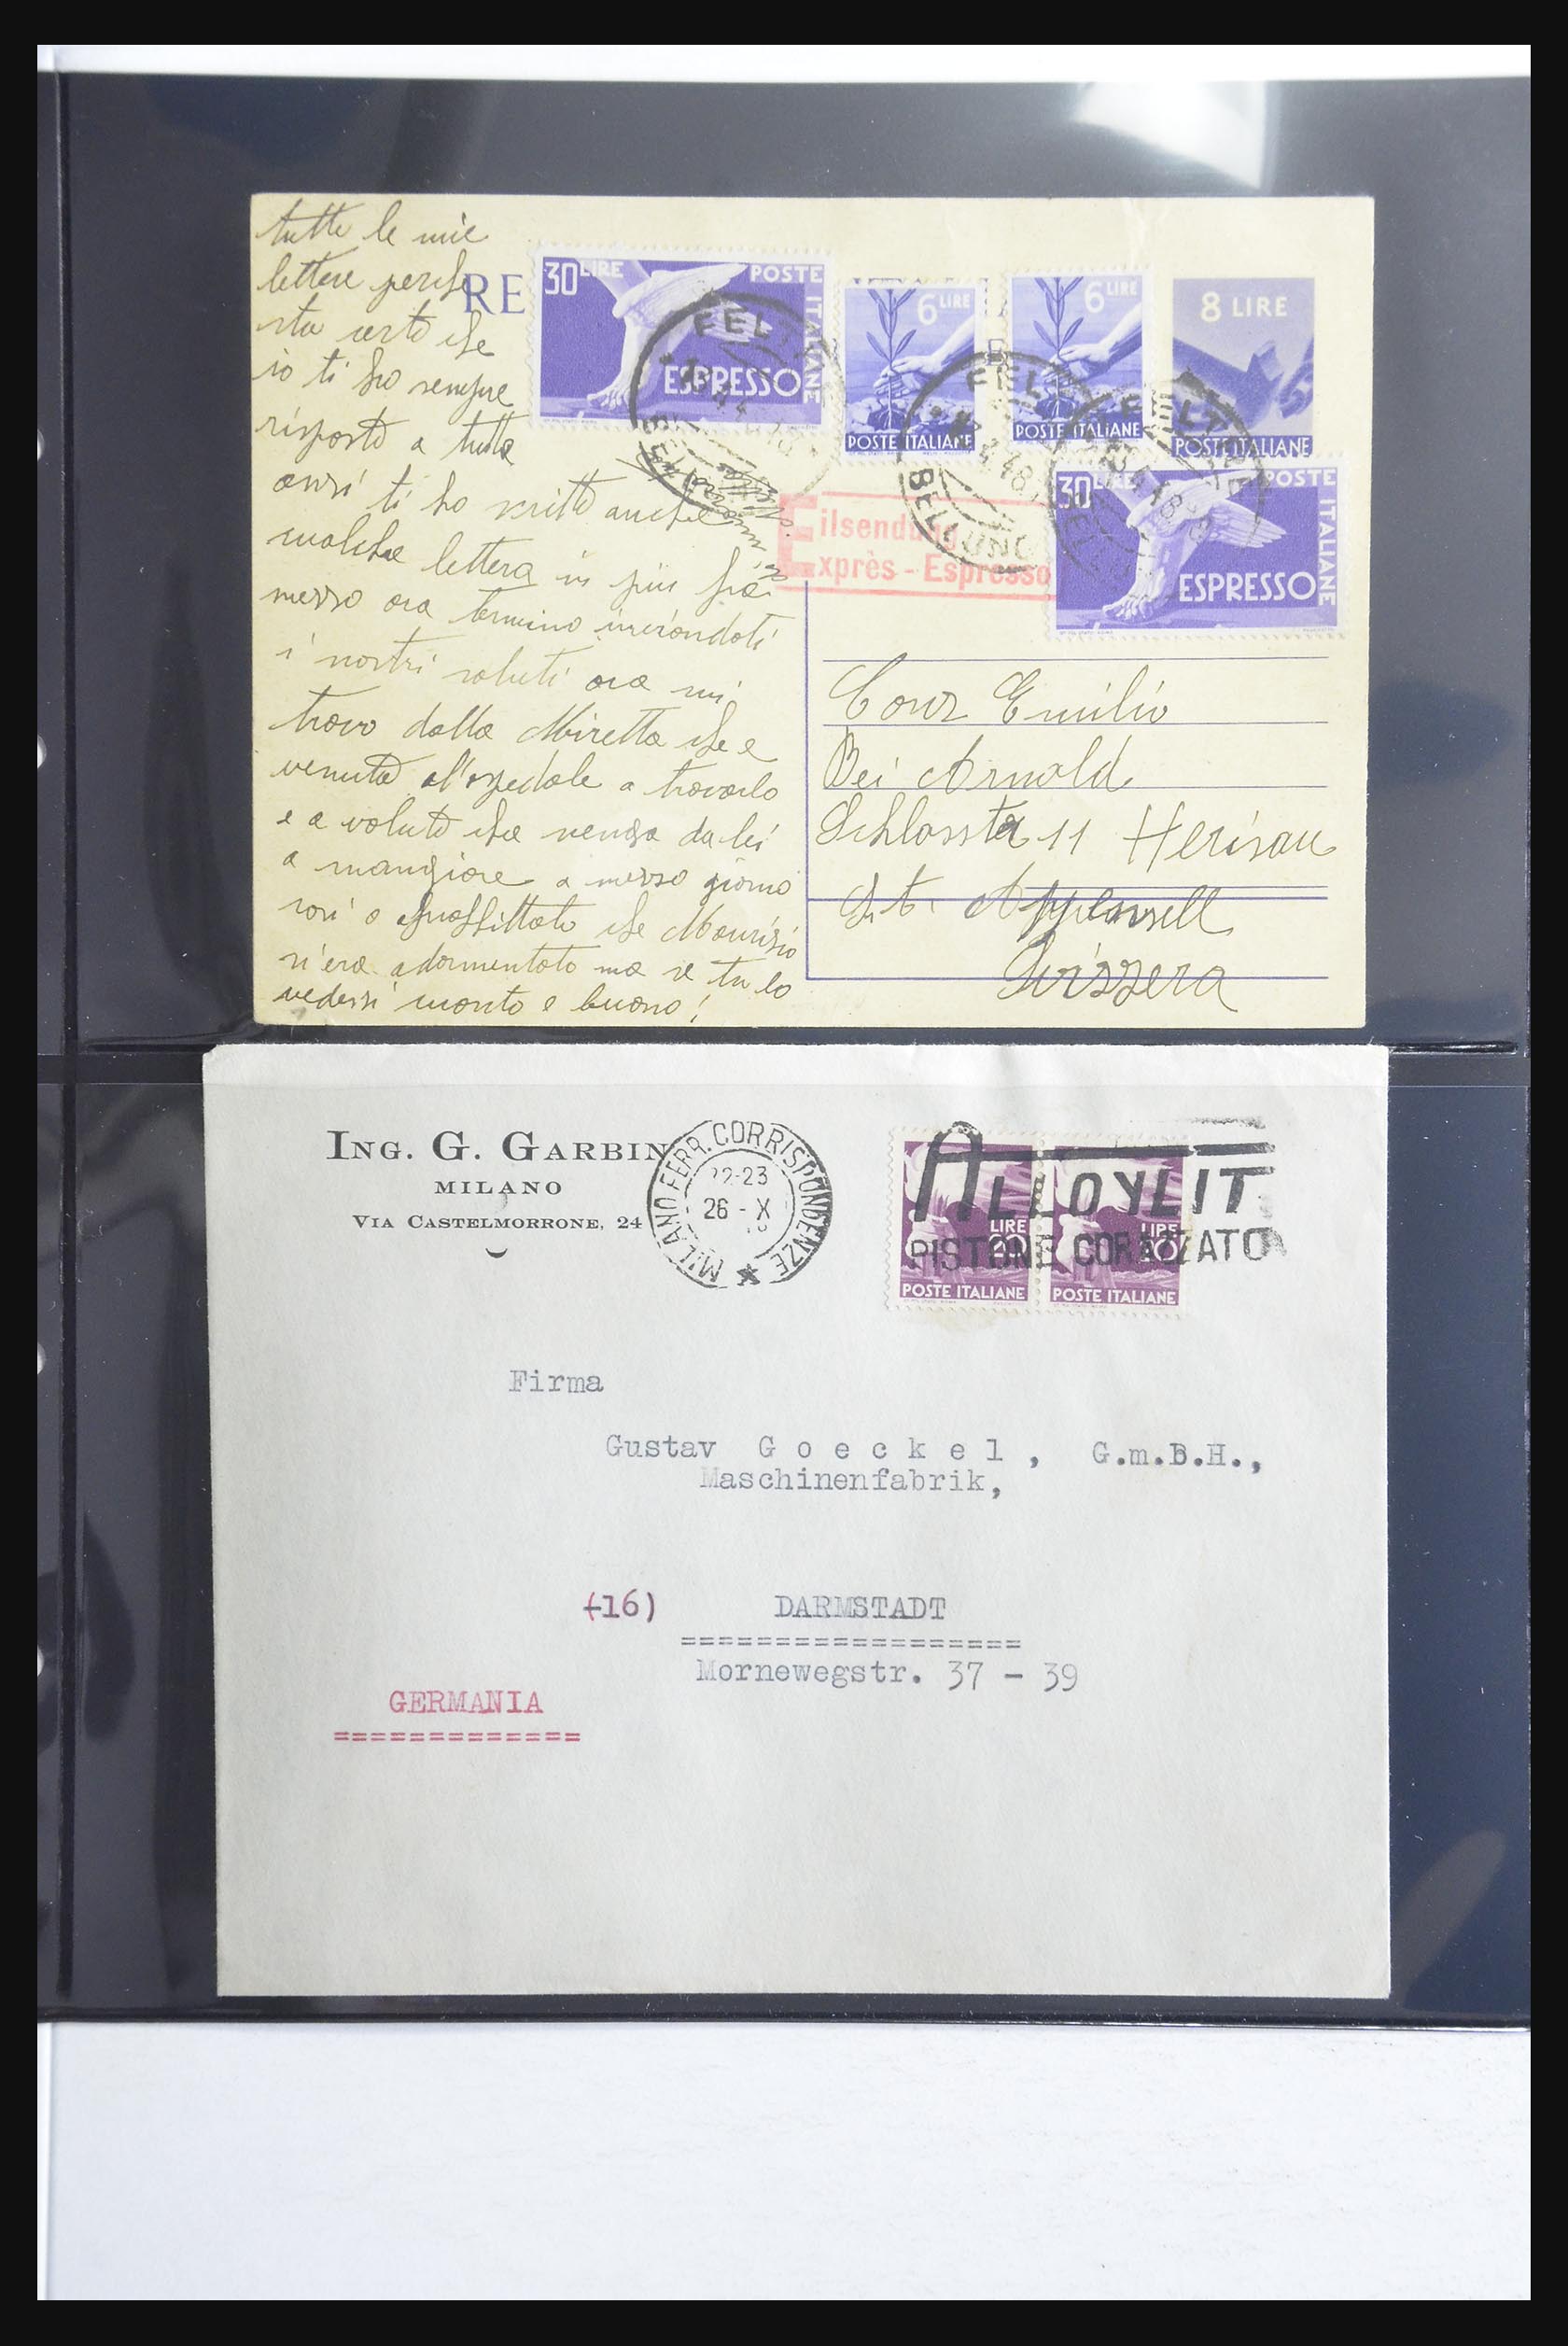 tutte le mie
lettere perché
sta certo che
io ti ho sempre
risposto a tutte
anzi ti ho scritto anche
qualche lettera in più
mezzo ora termino inviandoti
i nostri saluti ora mi
trovo dalla Miretta che e
venuta al'ospedale a trovarlo
e a voluto che venga da lei
a mangiare a mezzo giorno
così o che Maurizio
si era adormentato ma se tu lo
vedessi quanto e buono!
RE
30 LIRE POSTE ITALIANE
ESPRESSO
6 LIRE
POSTE ITALIANE
6 LIRE
POSTE ITALIANE
8 LIRE
POSTE ITALIANE
30 LIRE POSTE ITALIANE
ESPRESSO
BELLUNO
Eilsendung
Exprès - Espresso
Cour Emilio
Bei Arnold
11 Herisau
Appenzell
Svizzera
ING. G. GARBIN
MILANO
VIA CASTELMORRONE, 24
MILANO FERR. CORRISPONDENZE
22-23
26 - X
ALLOYLIT
PISTONE CORAZZATO
LIRE 20
POSTE ITALIANE
LIRE 20
POSTE ITALIANE
Firma
Gustav G o e c k e l , G.m.B.H.,
Maschinenfabrik,
(16) DARMSTADT
==================
Mornewegstr. 37 - 39
GERMANIA
=============